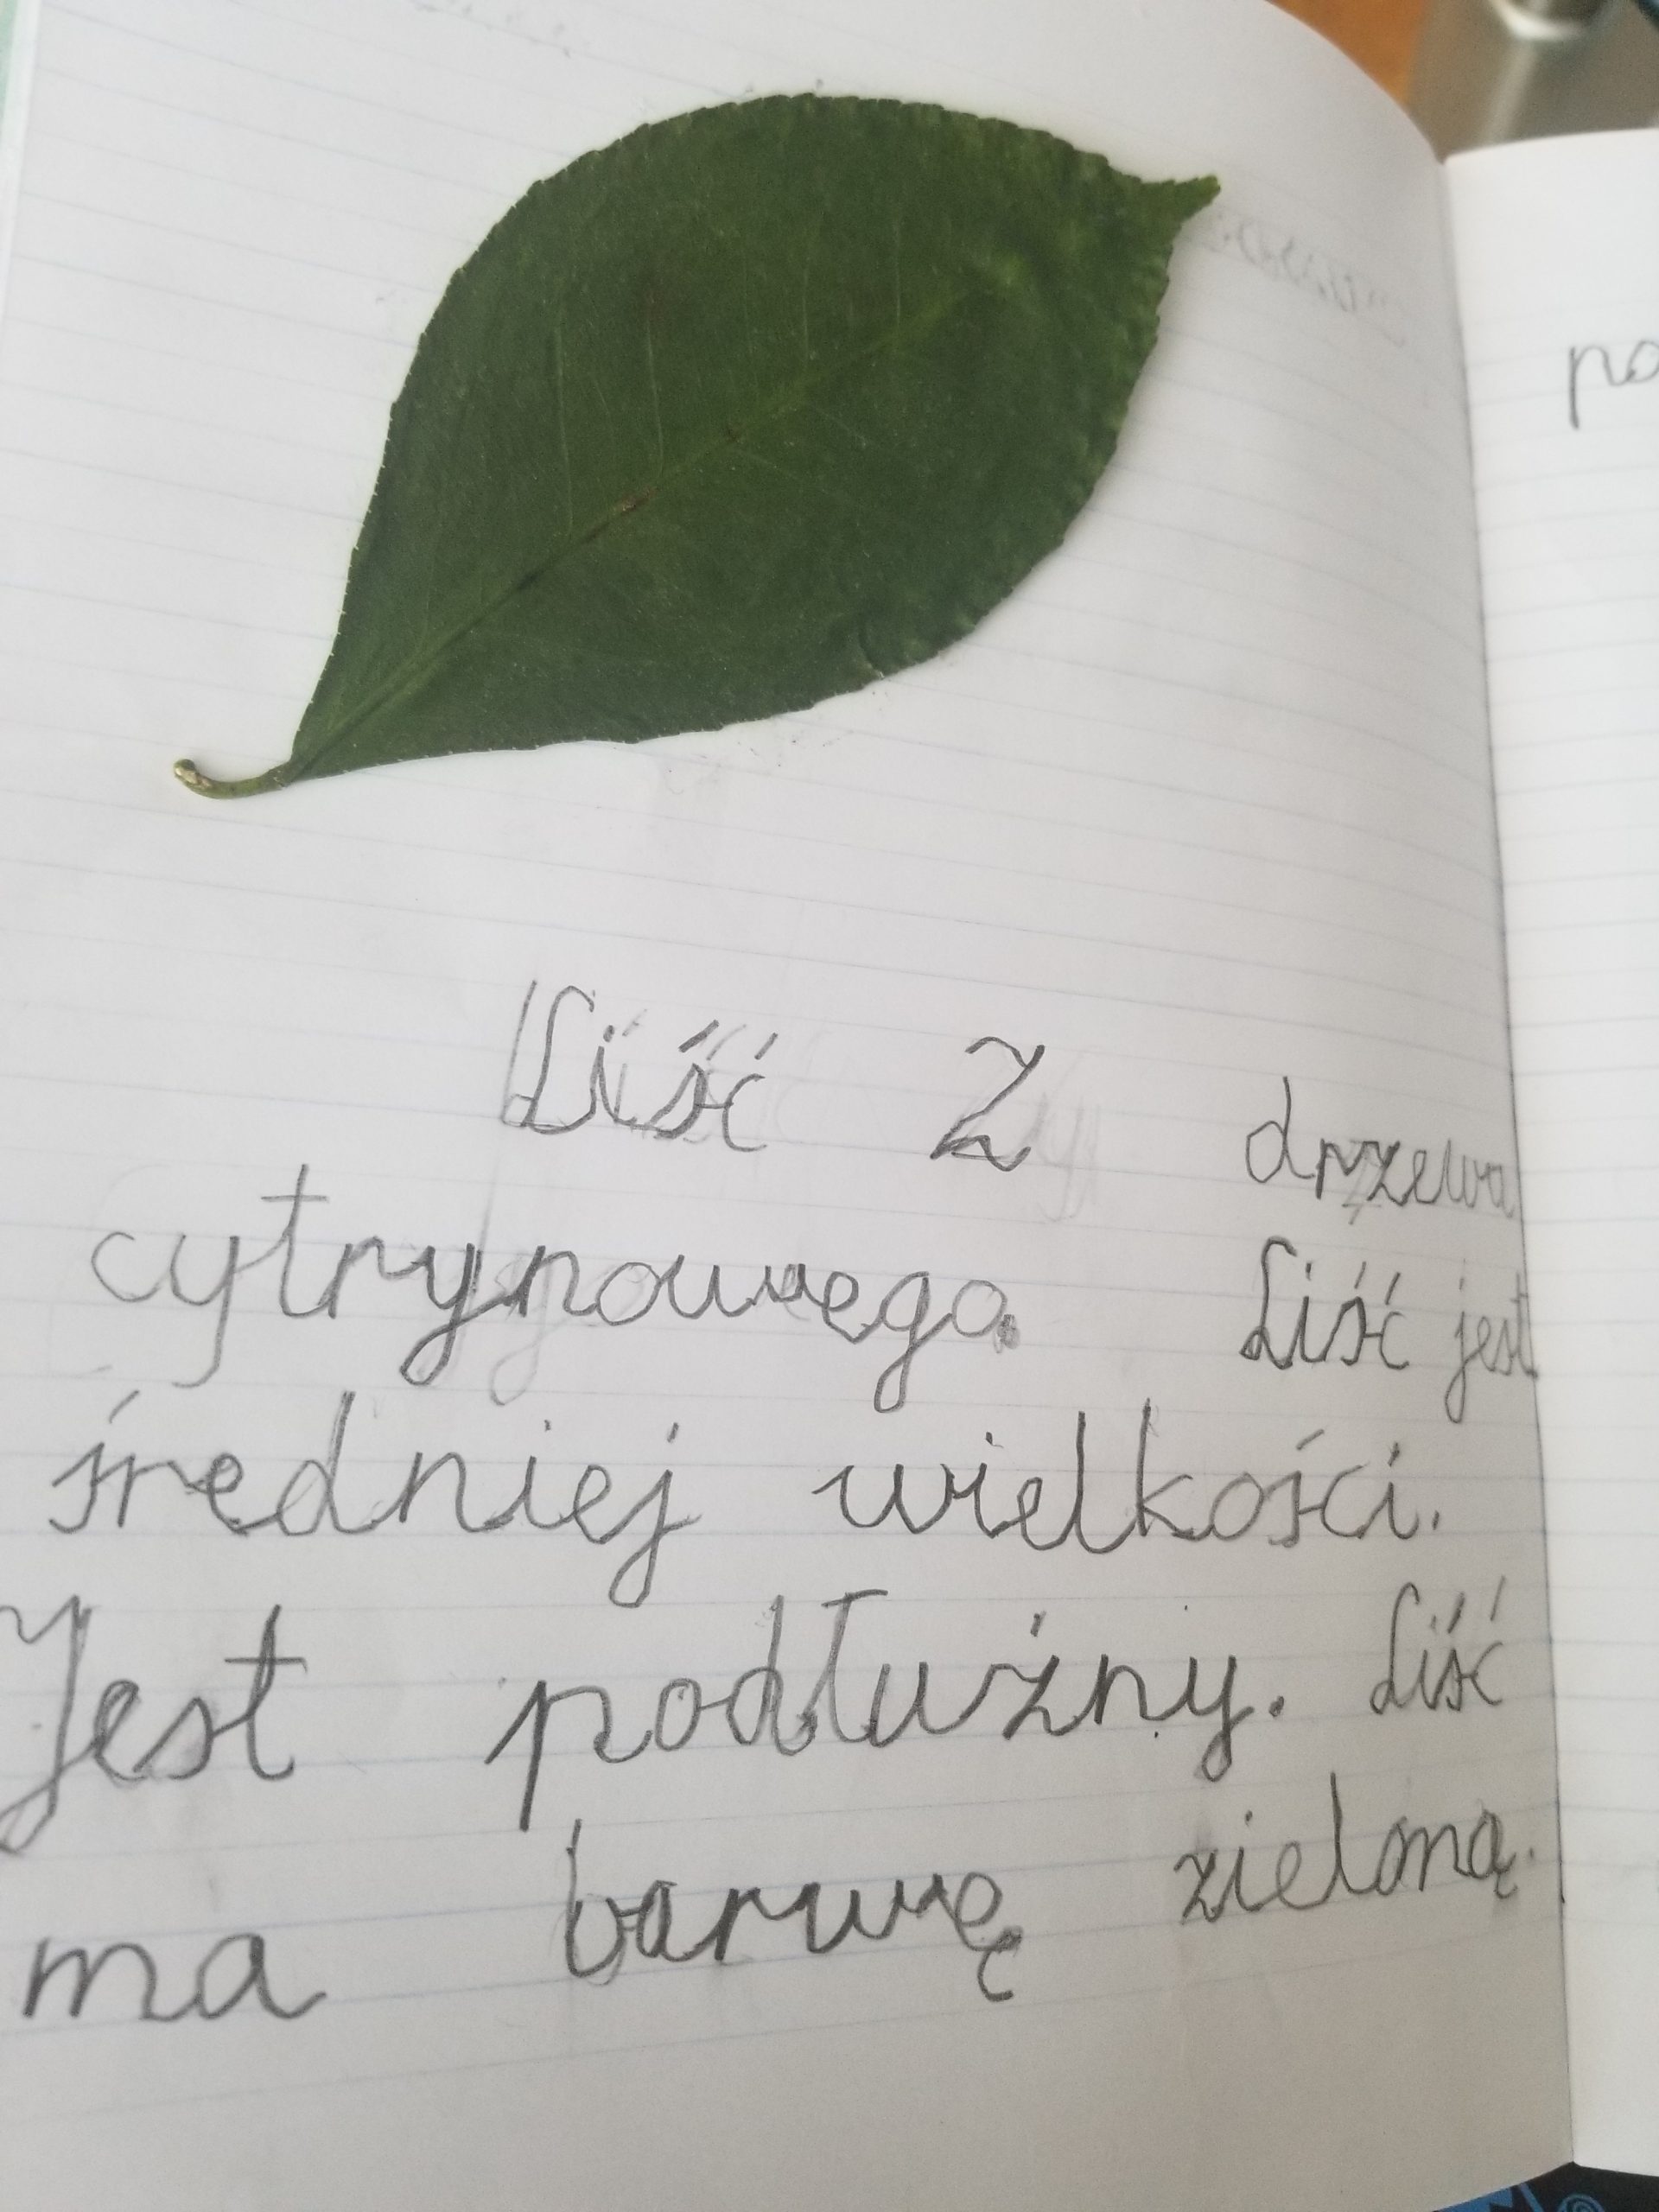 Liść z drzewa
cytrynowego. Liść jest
średniej wielkości.
Jest podłużny. Liść
ma barwę zieloną.